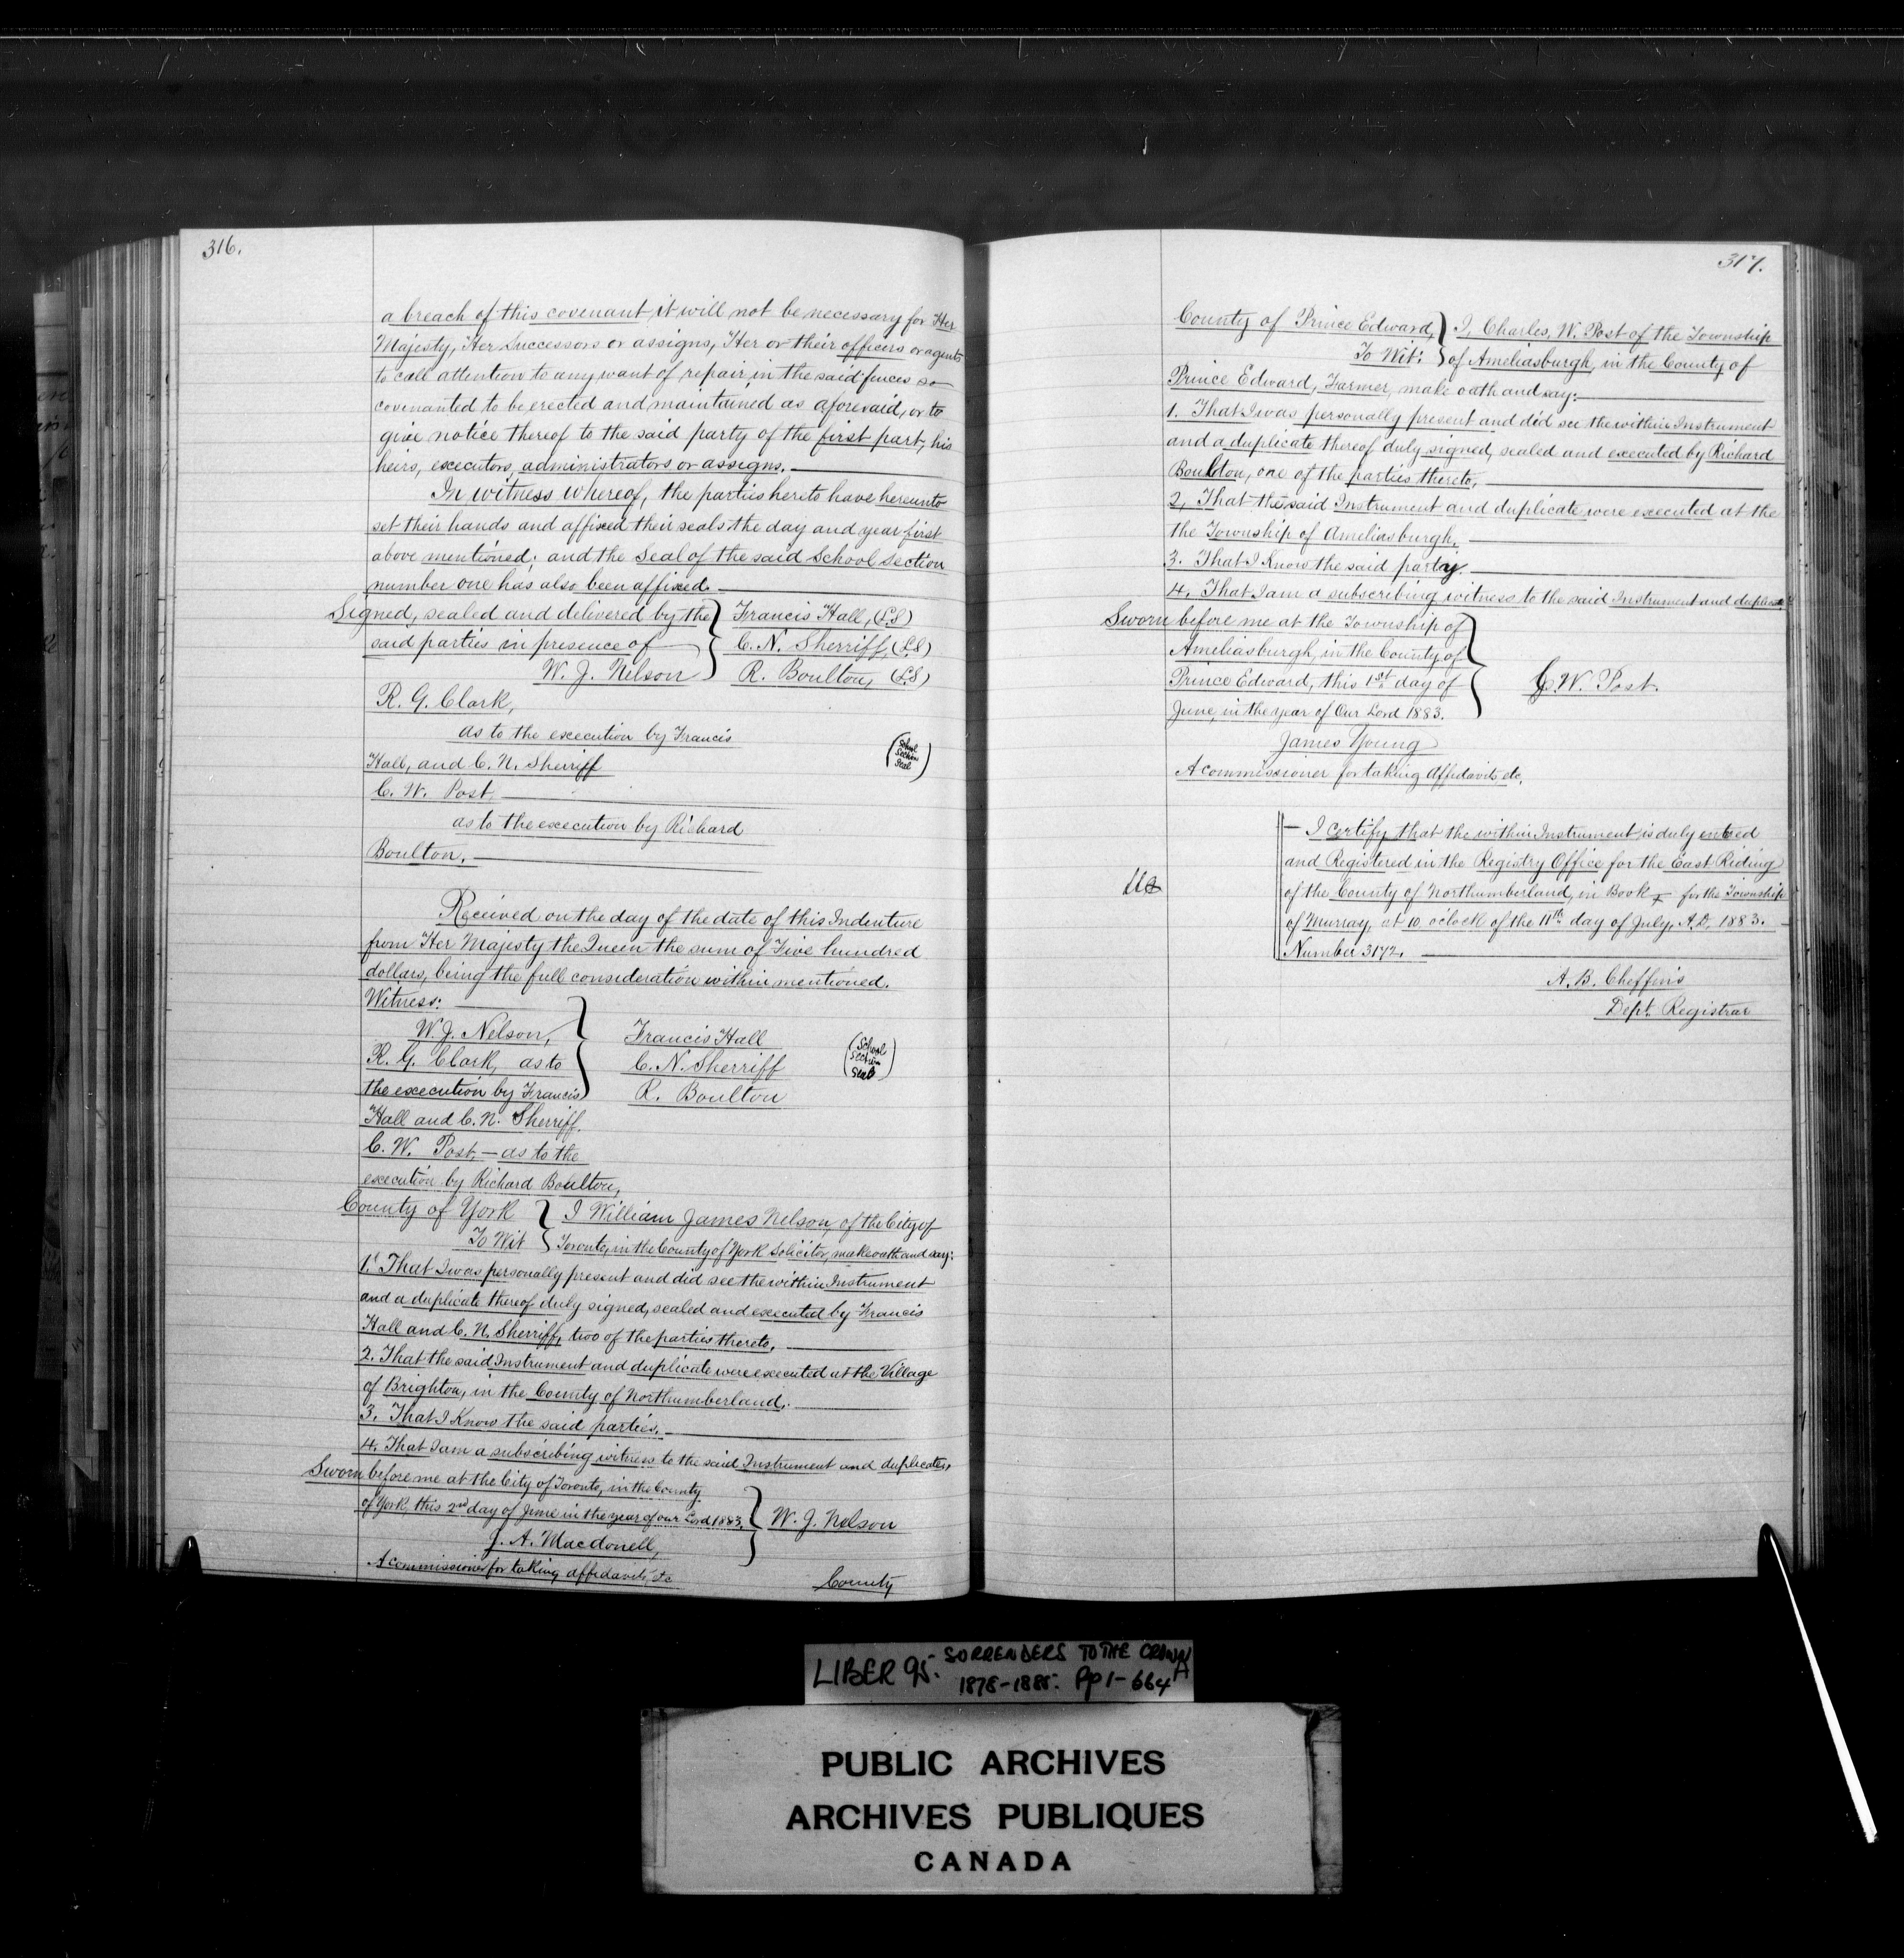 316.
a breach of this covenant it will not be necessary for Her
Majesty, Her Successors or assigns, Her or their officers or agents
to call attention to any want of repair, in the said fences so
covenanted to be erected and maintained as aforesaid, or to
give notice thereof to the said party of the first part, his
heirs, executors, administrators or assigns.
In witness whereof, the parties hereto have hereunto
set their hands and affixed their seals the day and year first
above mentioned; and the Seal of the said School Section
number one has also been affixed.
Signed, sealed and delivered by the } Francis Hall, (L.S)
said parties in presence of C. N. Sherriff, (L.S)
W. J. Nelson R. Boulton, (L.S)
R. G. Clark,
as to the execution by Francis
Hall, and C. N. Sherriff
(School Section Seal)
C. W. Post,
as to the execution by Richard
Boulton.
Received on the day of the date of this Indenture
from Her Majesty the Queen the sum of Five hundred
dollars, being the full consideration within mentioned.
Witness:
W. J. Nelson, } Francis Hall
R. G. Clark, as to C. N. Sherriff
the execution by Francis R. Boulton
(School Section Seal)
Hall and C. N. Sherriff.
C. W. Post, — as to the
execution by Richard Boulton,
County of York } I William James Nelson, of the City of
To Wit Toronto, in the County of York Solicitor, make oath and say:
1. That I was personally present and did see the within Instrument
and a duplicate thereof duly signed, sealed and executed by Francis
Hall and C. N. Sherriff, two of the parties thereto,
2. That the said Instrument and duplicate were executed at the Village
of Brighton, in the County of Northumberland.
3. That I Know the said parties.
4. That I am a subscribing witness to the said Instrument and duplicate,
Sworn before me at the City of Toronto, in the County
of York, this 2nd day of June in the year of our Lord 1883. } W. J. Nelson
J. A. Macdonell,
A commissioner for taking affidavits, etc
County
317.
County of Prince Edward, } I, Charles, W. Post of the Township
To Wit: of Ameliasburgh, in the County of
Prince Edward, Farmer, make oath and say:
1. That I was personally present and did see the within Instrument
and a duplicate thereof duly signed, sealed and executed by Richard
Boulton, one of the parties thereto,
2. That the said Instrument and duplicate were executed at the
the Township of Ameliasburgh.
3. That I Know the said party.
4. That I am a subscribing witness to the said Instrument and duplicate
Sworn before me at the Township of
Ameliasburgh, in the County of
Prince Edward, this 1st day of } C. W. Post.
June, in the year of Our Lord 1883.
James Young
A commissioner for taking Affidavits etc.
— I certify that the within Instrument is duly entered
and Registered in the Registry Office for the East Riding
of the County of Northumberland, in Book I for the Township
of Murray, at 10 o'clock of the 11th day of July, A.D. 1883.
Number 3172.
A. B. Cheffins
Dept. Registrar
LIBER 95. SORRENDERS TO THE CROWN
1878-1885. Pp 1-664
PUBLIC ARCHIVES
ARCHIVES PUBLIQUES
CANADA